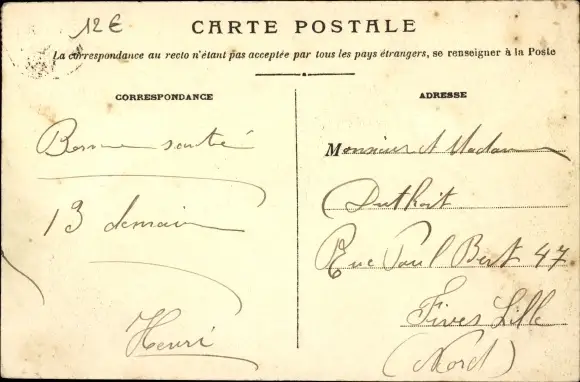 12 €
CARTE POSTALE
La correspondance au recto n'étant pas acceptée par tous les pays étrangers, se renseigner à la Poste
CORRESPONDANCE
Bonne santé
13 demain
Henri
ADRESSE
Monsieur et Madame
Duthoit
Rue Paul Bert 47
Fives Lille
(Nord)